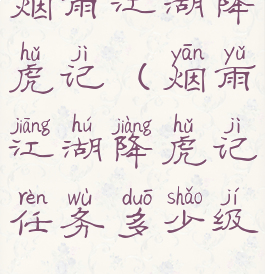 烟雨江湖降
hǔ jì yān yǔ
虎记（烟雨
jiāng hú jiàng hǔ jì
江湖降虎记
rèn wù duō shǎo jí
任务多少级